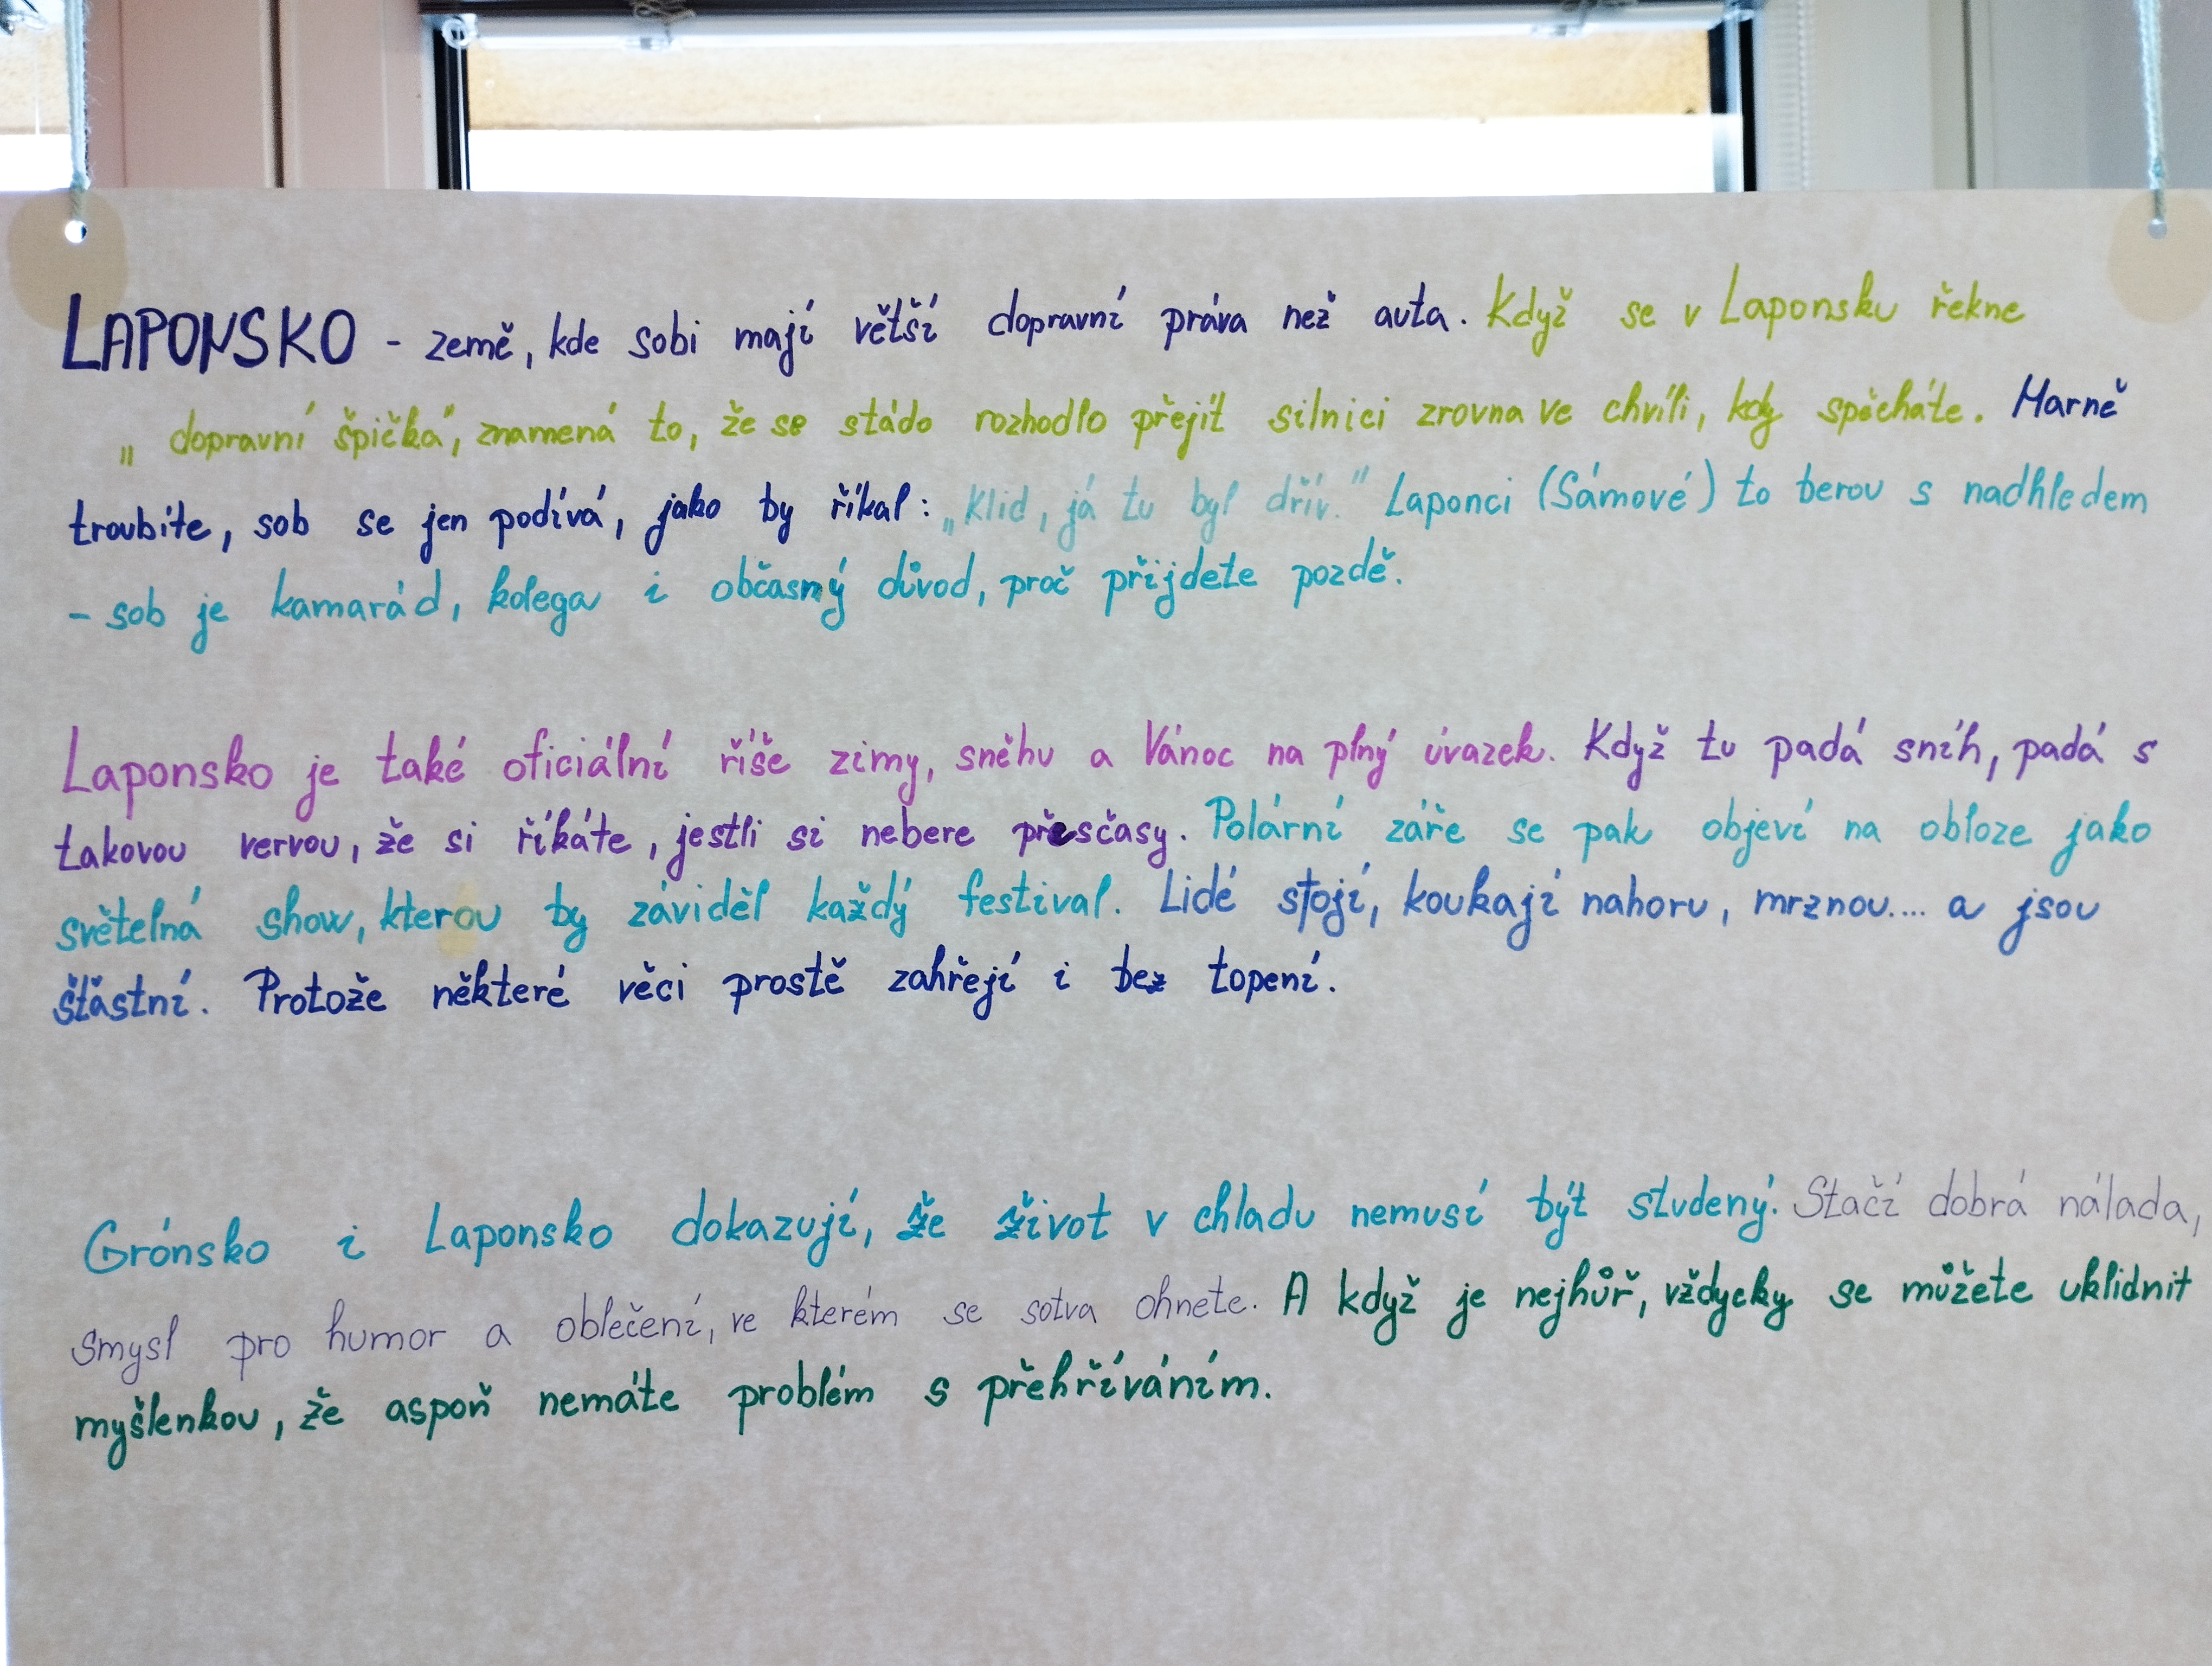 LAPONSKO - země, kde sobi mají větší dopravní práva než auta. Když se v Laponsku řekne
„dopravní špička", znamená to, že se stádo rozhodlo přejít silnici zrovna ve chvíli, kdy spěcháte. Marně
troubíte, sob se jen podívá, jako by říkal: „Klid, já tu byl dřív." Laponci (Sámové) to berou s nadhledem
- sob je kamarád, kolega i občasný důvod, proč přijdete pozdě.
Laponsko je také oficiální říše zimy, sněhu a Vánoc na plný úvazek. Když tu padá sníh, padá s
takovou vervou, že si říkáte, jestli si nebere přesčasy. Polární záře se pak objeví na obloze jako
světelná show, kterou by záviděl každý festival. Lidé stojí, koukají nahoru, mrznou.... a jsou
šťastní. Protože některé věci prostě zahřejí i bez topení.
Grónsko i Laponsko dokazují, že život v chladu nemusí být studený. Stačí dobrá nálada,
smysl pro humor a oblečení, ve kterém se sotva ohnete. A když je nejhůř, vždycky se můžete uklidnit
myšlenkou, že aspoň nemáte problém s přehříváním.